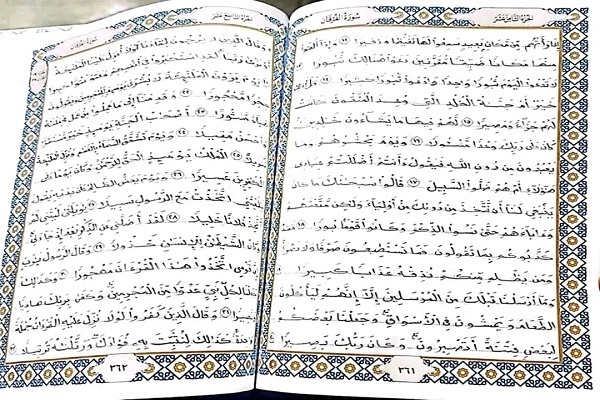 الجزء الثامن عشر
سورة الفرقان
إِذَا رَأَتْهُم مِّن مَّكَانٍ بَعِيدٍ سَمِعُوا۟ لَهَا تَغَيُّظًا وَزَفِيرًا ١٢ وَإِذَآ أُلْقُوا۟
مِنْهَا مَكَانًا ضَيِّقًا مُّقَرَّنِينَ دَعَوْا۟ هُنَالِكَ ثُبُورًا ١٣
لَّا تَدْعُوا۟ ٱلْيَوْمَ ثُبُورًا وَٰحِدًا وَٱدْعُوا۟ ثُبُورًا كَثِيرًا ١٤ قُلْ أَذَٰلِكَ
خَيْرٌ أَمْ جَنَّةُ ٱلْخُلْدِ ٱلَّتِى وُعِدَ ٱلْمُتَّقُونَ كَانَتْ
لَهُمْ جَزَآءً وَمَصِيرًا ١٥ لَّهُمْ فِيهَا مَا يَشَآءُونَ خَٰلِدِينَ
كَانَ عَلَىٰ رَبِّكَ وَعْدًا مَّسْـُٔولًا ١٦ وَيَوْمَ يَحْشُرُهُمْ وَمَا
يَعْبُدُونَ مِن دُونِ ٱللَّهِ فَيَقُولُ ءَأَنتُمْ أَضْلَلْتُمْ عِبَادِى
هَٰٓؤُلَآءِ أَمْ هُمْ ضَلُّوا۟ ٱلسَّبِيلَ ١٧ قَالُوا۟ سُبْحَٰنَكَ مَا كَانَ
يَنۢبَغِى لَنَآ أَن نَّتَّخِذَ مِن دُونِكَ مِنْ أَوْلِيَآءَ وَلَٰكِن مَّتَّعْتَهُمْ
وَءَابَآءَهُمْ حَتَّىٰ نَسُوا۟ ٱلذِّكْرَ وَكَانُوا۟ قَوْمًۢا بُورًا ١٨ فَقَدْ
كَذَّبُوكُم بِمَا تَقُولُونَ فَمَا تَسْتَطِيعُونَ صَرْفًا وَلَا نَصْرًا
وَمَن يَظْلِم مِّنكُمْ نُذِقْهُ عَذَابًا كَبِيرًا ١٩
وَمَآ أَرْسَلْنَا قَبْلَكَ مِنَ ٱلْمُرْسَلِينَ إِلَّآ إِنَّهُمْ لَيَأْكُلُونَ
ٱلطَّعَامَ وَيَمْشُونَ فِى ٱلْأَسْوَاقِ وَجَعَلْنَا بَعْضَكُمْ
لِبَعْضٍ فِتْنَةً أَتَصْبِرُونَ وَكَانَ رَبُّكَ بَصِيرًا ٢٠
٣٦١
الجزء التاسع عشر
سورة الفرقان
وَقَالَ ٱلَّذِينَ لَا يَرْجُونَ لِقَآءَنَا لَوْلَآ أُنزِلَ عَلَيْنَا ٱلْمَلَٰٓئِكَةُ
أَوْ نَرَىٰ رَبَّنَا لَقَدِ ٱسْتَكْبَرُوا۟ فِىٓ أَنفُسِهِمْ وَعَتَوْ عُتُوًّا كَبِيرًا
٢١ يَوْمَ يَرَوْنَ ٱلْمَلَٰٓئِكَةَ لَا بُشْرَىٰ يَوْمَئِذٍ لِّلْمُجْرِمِينَ وَيَقُولُونَ
حِجْرًا مَّحْجُورًا ٢٢ وَقَدِمْنَآ إِلَىٰ مَا عَمِلُوا۟ مِنْ عَمَلٍ فَجَعَلْنَٰهُ
هَبَآءً مَّنثُورًا ٢٣ أَصْحَٰبُ ٱلْجَنَّةِ يَوْمَئِذٍ خَيْرٌ مُّسْتَقَرًّا
وَأَحْسَنُ مَقِيلًا ٢٤ وَيَوْمَ تَشَقَّقُ ٱلسَّمَآءُ بِٱلْغَمَٰمِ وَنُزِّلَ ٱلْمَلَٰٓئِكَةُ
تَنزِيلًا ٢٥ ٱلْمُلْكُ يَوْمَئِذٍ ٱلْحَقُّ لِلرَّحْمَٰنِ وَكَانَ يَوْمًا عَلَى
ٱلْكَٰفِرِينَ عَسِيرًا ٢٦ وَيَوْمَ يَعَضُّ ٱلظَّالِمُ عَلَىٰ يَدَيْهِ يَقُولُ
يَٰلَيْتَنِى ٱتَّخَذْتُ مَعَ ٱلرَّسُولِ سَبِيلًا ٢٧ يَٰوَيْلَتَىٰ لَيْتَنِى
لَمْ أَتَّخِذْ فُلَانًا خَلِيلًا ٢٨ لَّقَدْ أَضَلَّنِى عَنِ ٱلذِّكْرِ بَعْدَ إِذْ جَآءَنِى
وَكَانَ ٱلشَّيْطَٰنُ لِلْإِنسَٰنِ خَذُولًا ٢٩ وَقَالَ ٱلرَّسُولُ يَٰرَبِّ
إِنَّ قَوْمِى ٱتَّخَذُوا۟ هَٰذَا ٱلْقُرْءَانَ مَهْجُورًا ٣٠ وَكَذَٰلِكَ
جَعَلْنَا لِكُلِّ نَبِىٍّ عَدُوًّا مِّنَ ٱلْمُجْرِمِينَ وَكَفَىٰ بِرَبِّكَ هَادِيًا
وَنَصِيرًا ٣١ وَقَالَ ٱلَّذِينَ كَفَرُوا۟ لَوْلَا نُزِّلَ عَلَيْهِ ٱلْقُرْءَانُ جُمْلَةً
وَٰحِدَةً كَذَٰلِكَ لِنُثَبِّتَ بِهِۦ فُؤَادَكَ وَرَتَّلْنَٰهُ تَرْتِيلًا
٣٦٢